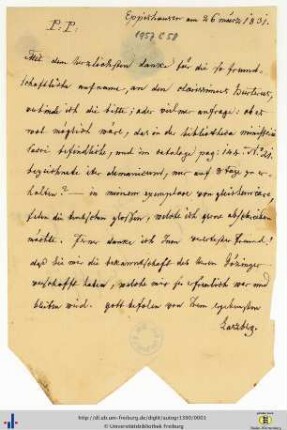 Eppishausen am 26 märz 1831.
1957 C 58
P. P.
Mit dem herzlichsten danke für die so freund-
schaftliche aufname, an den clarissimus Huterus,
verbinde ich die bitte; oder vielmer anfrage: ob es
wol möglich wäre, das in der bibliotheca ministerii
befindliche, und im cataloge pag:
bezeichnete mir auf tage zu er-
halten? — in meinem exemplare von gleichem
felen die deutschen glossen, welche ich gerne abschreiben
möchte. Ferner danke ich Inen verertester Freund!
daß Sie mir die bekanntschaft des Herren Götzinger
verschafft haben, welche mir so erfreulich war und
bleiben wird. gott befolen von Irem ergebensten
Laszberg.
http://dl.ub.uni-freiburg.de/diglit/autogr1390/0001
© Universitätsbibliothek Freiburg